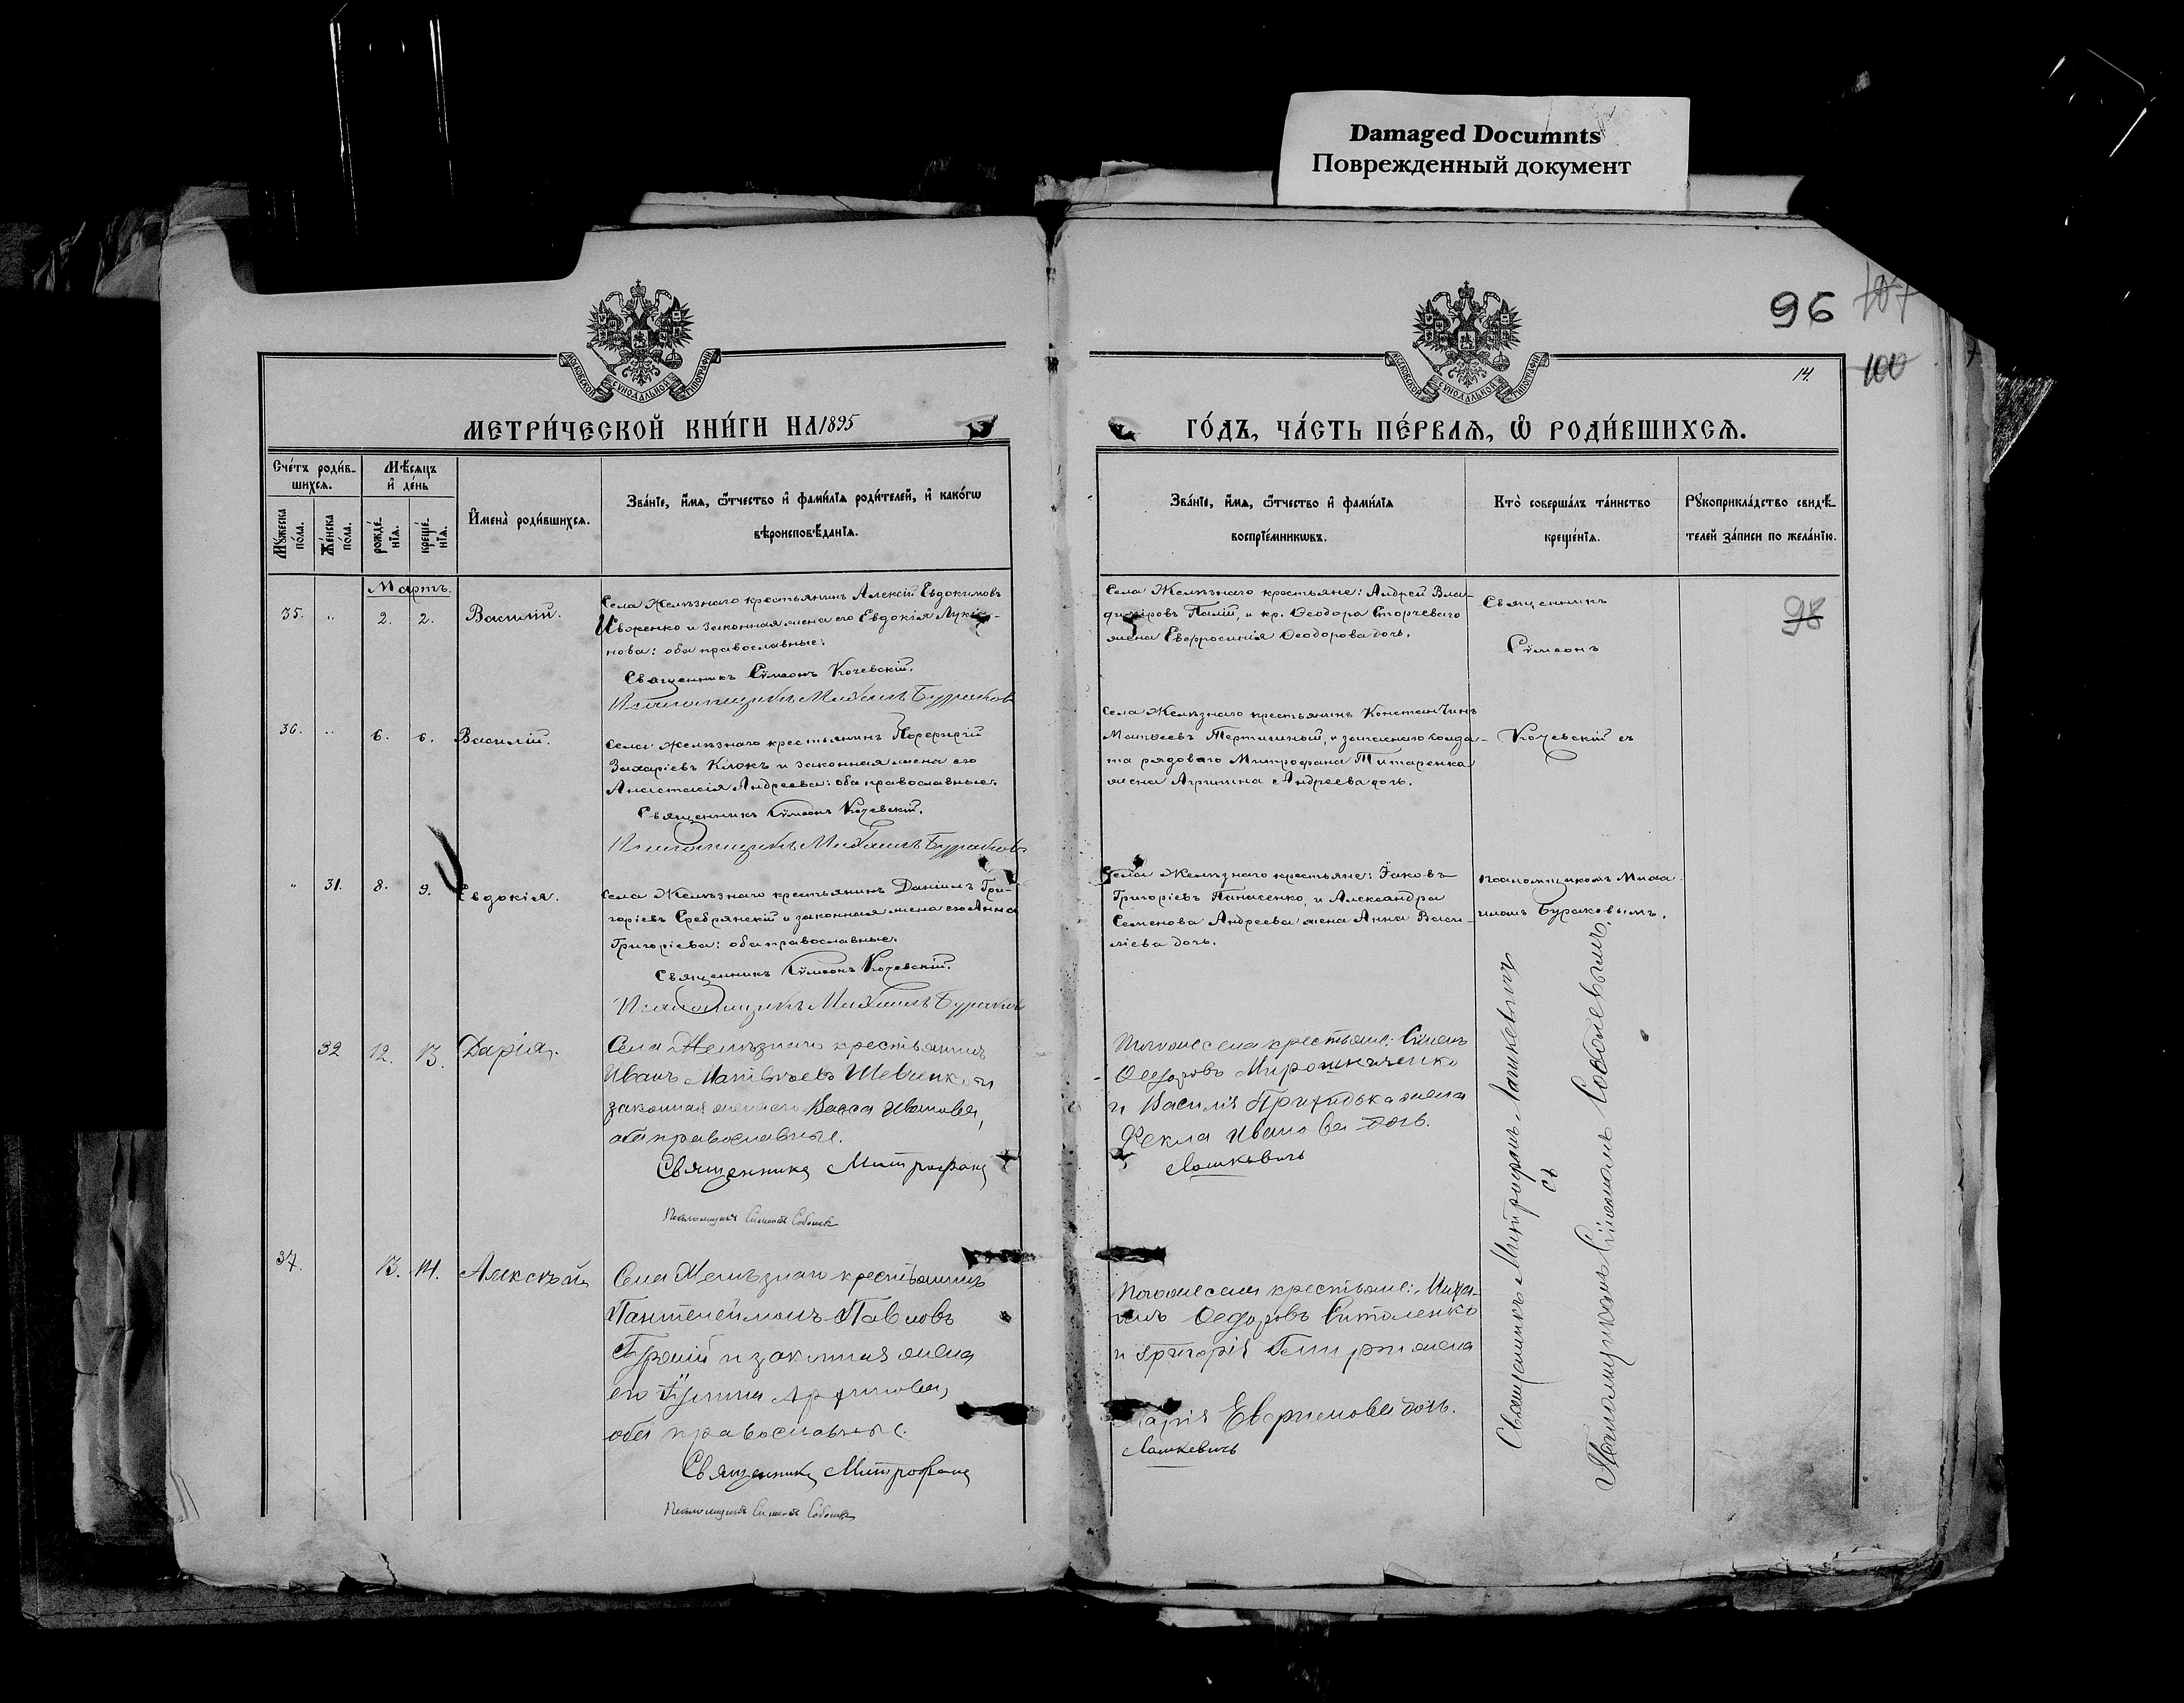 Damaged Documnts
Повреждeнный документ
96 107
100
14.
МЕТРИЧЕСКОЙ КНИГИ НА 1895
ГОДЪ, ЧАСТЬ ПЕРВАЯ, Ѡ РОДИВШИХСЯ.
Счетъ родив-
шихся.
Мѣсяцъ
и день
Мужеска
пола.
Женска
пола.
рожде-
нія.
креще-
нія.
Имена родившихся.
Званіе, имя, ѿчество и фамилія родителей, и какогѡ
вѣроисповѣданія.
Званіе, имя, ѿчество и фамилія
воспріемникѡвъ.
Кто совершалъ таинство
крещенія.
Рукоприкладство свидѣ-
телей записи по желанію.
Мартъ.
35. „ 2. 2. Василій.
Села Желѣзнаго крестьянинъ Алексій Евдокимовъ
Ивженко и законная жена его Евдокія Лукія-
нова: оба православные.
Священникъ Сѵмеонъ Кочевскій.
Псаломщикъ Михаилъ Бураковъ
Села Желѣзнаго крестьяне: Андрей Вла-
диміровъ Палій, и кр. Ѳеодора Сторчеваго
жена Евфросинія Ѳеодорова дочь.
Священникъ
Сѵмеонъ
98
36. „ 6. 6. Василій.
Села Желѣзнаго крестьянинъ Порфирій
Захаріевъ Клокъ и законная жена его
Анастасія Андреева: оба православные.
Священникъ Сѵмеонъ Кочевскій.
Псаломщикъ Михаилъ Бураковъ
Села Желѣзнаго крестьянинъ Константинъ
Матѳеевъ Тертишный, и запаснаго солда-
та рядоваго Митрофана Титаренка
жена Агрипина Андреева дочь.
Кочевскій съ
„ 31. 8. 9. Евдокія.
Села Желѣзнаго крестьянинъ Даніилъ Гри-
горіевъ Сребрянскій и законная жена его Анна
Григоріева: оба православные.
Священникъ Сѵмеонъ Кочевскій.
Псаломщикъ Михаилъ Бураковъ
Села Желѣзнаго крестьяне: Іаковъ
Григоріевъ Панасенко, и Александра
Семенова Андреева жена Анна Васи-
ліева дочь.
псаломщикомъ Миха-
иломъ Бураковымъ.
32 12. 13. Дарія.
Села Желѣзнаго крестьянинъ
Иванъ Матвѣевъ Шевченко и
законная жена его Васса Иванова,
оба православные.
Священникъ Митрофанъ
Псаломщикъ Симеонъ Соболевъ
того же села крестьяне: Сѵмеонъ
Ѳедоровъ Мирошниченко
и Василія Прихидька жена
Фекла Иванова дочь.
Лашкевичъ
37. 13. 14. Алексѣй
Села Желѣзнаго крестьянинъ
Пантелеймонъ Павловъ
и законная жена
оба православные.
Священникъ Митрофанъ
Псаломщикъ Симеонъ Соболевъ
того же села крестьяне: Миха-
илъ Ѳедоровъ
и Григорія жена
Марія Евфимова дочь.
Лашкевичъ
Священникъ Митрофанъ Лашкевичъ
съ
Псаломщикомъ Сѵмеономъ Соболевымъ.